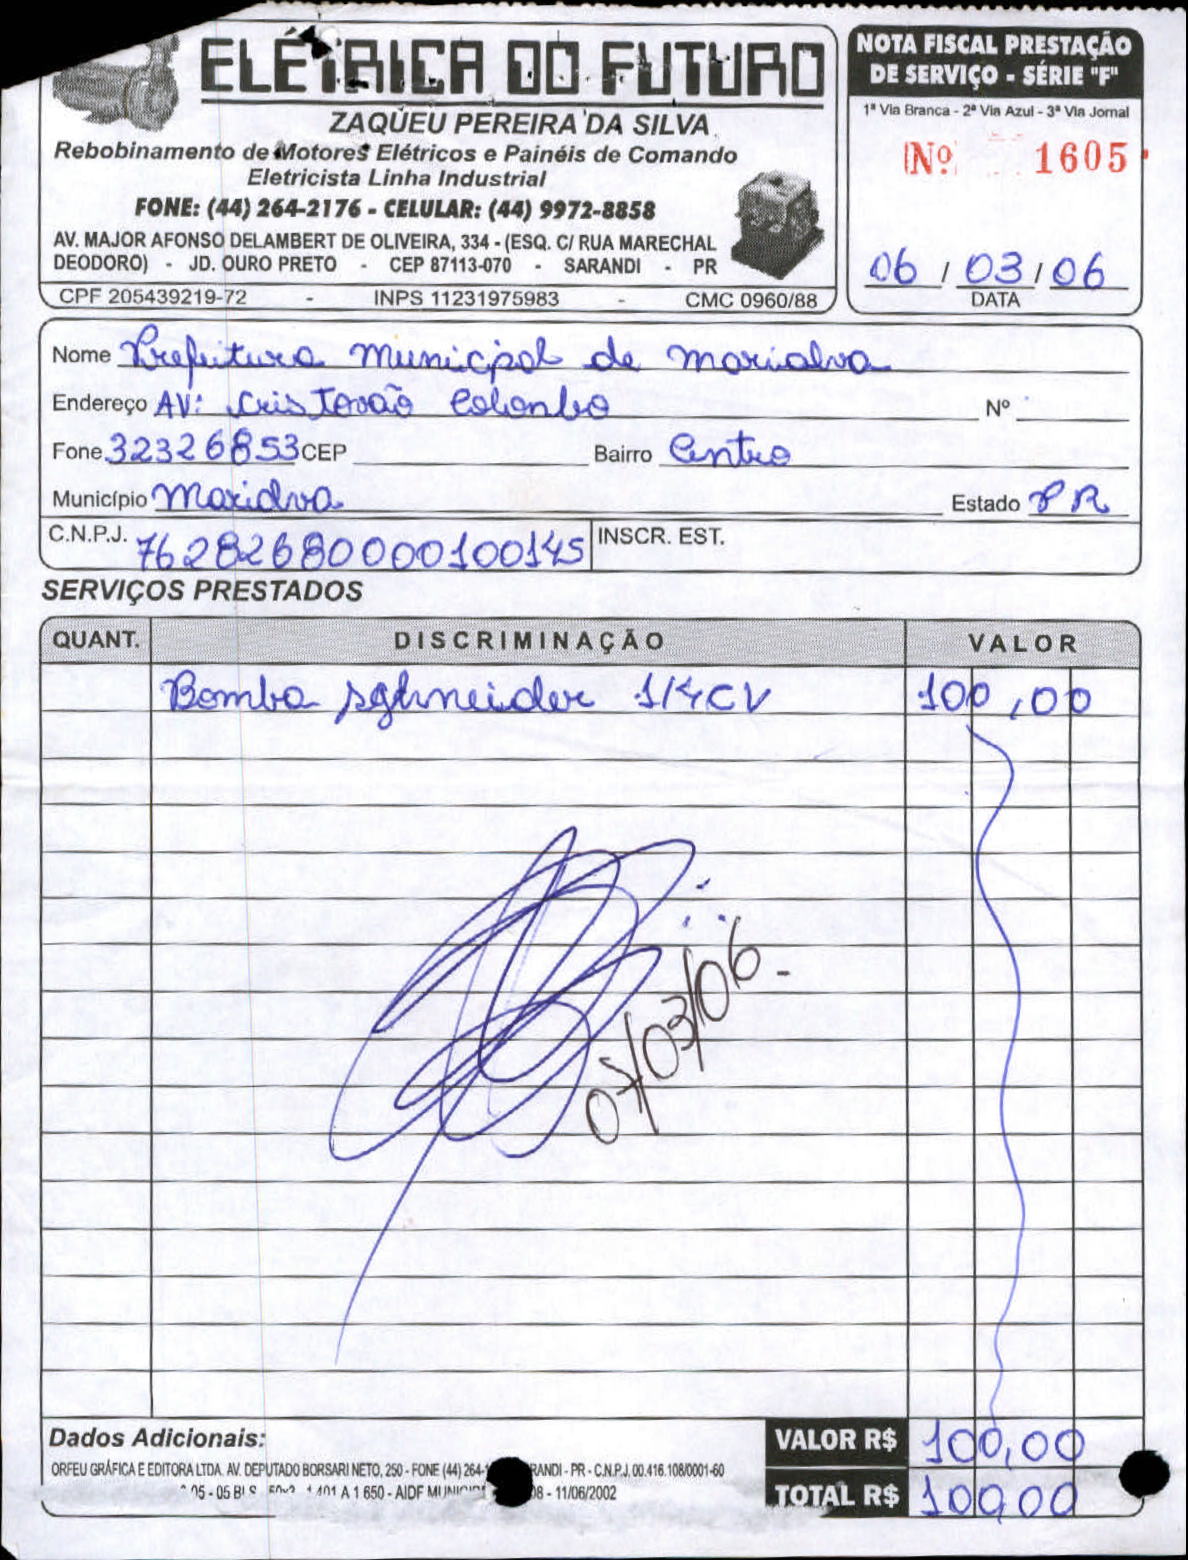 ELÉTRICA DO FUTURO
ZAQUEU PEREIRA DA SILVA
Rebobinamento de Motores Elétricos e Painéis de Comando
Eletricista Linha Industrial
FONE: (44) 264-2176 - CELULAR: (44) 9972-8858
AV. MAJOR AFONSO DELAMBERT DE OLIVEIRA, 334 - (ESQ. C/ RUA MARECHAL
DEODORO) - JD. OURO PRETO - CEP 87113-070 - SARANDI - PR
CPF 205439219-72 - INPS 11231975983 - CMC 0960/88
NOTA FISCAL PRESTAÇÃO
DE SERVIÇO - SÉRIE "F"
1ª Via Branca - 2ª Via Azul - 3ª Via Jornal
Nº 1605
06 / 03 / 06
DATA
Nome Prefeitura Municipal de Marialva
Endereço AV: Cristovão Colombo Nº
Fone 32326853 CEP Bairro Centro
Município Marialva Estado PR
C.N.P.J. 76282680000100145 INSCR. EST.
SERVIÇOS PRESTADOS
QUANT. DISCRIMINAÇÃO VALOR
Bomba sghneider 1/4CV 100,00
07/03/06.
Dados Adicionais: VALOR R$ 100,00
ORFEU GRÁFICA E EDITORA LTDA. AV. DEPUTADO BORSARI NETO, 250 - FONE (44) 264- RANDI - PR - C.N.P.J. 00.416.108/0001-60
05 - 05 BLS 1.401 A 1.650 - AIDF - 11/06/2002 TOTAL R$ 100,00